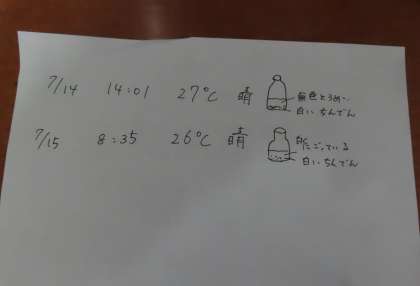 7/14 14:01 27℃ 晴 無色とうめい
白いちんでん
7/15 8:35 26℃ 晴 白くにごっている
白いちんでん